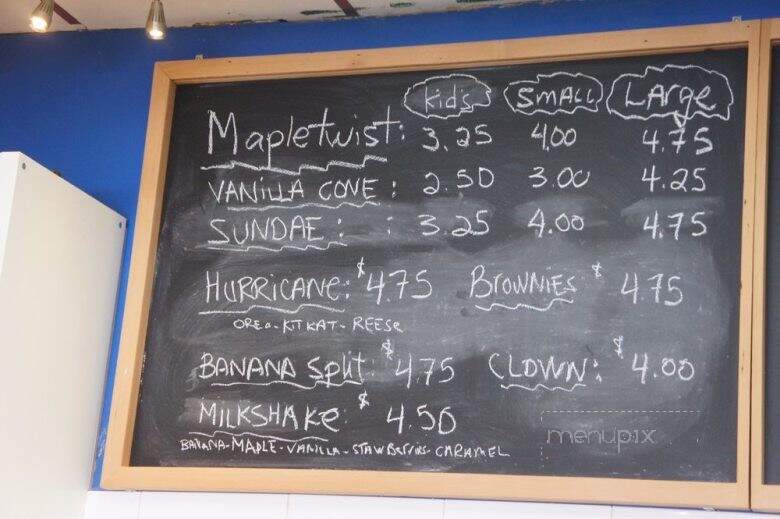 kid's SMALL LARge
Mapletwist: 3.25 4.00 4.75
VANILLA CONE: 2.50 3.00 4.25
SUNDAE: : 3.25 4.00 4.75
HURRiCANe: $4.75 BROWNiES $4.75
OREO-KiTKAT-REESE
BANANA Split: $4.75 CLOWN: $4.00
MiLKSHAKe: $4.50
BANANA-MAPLE-VANILLA-STAWBerries-CARAMEL
menupix